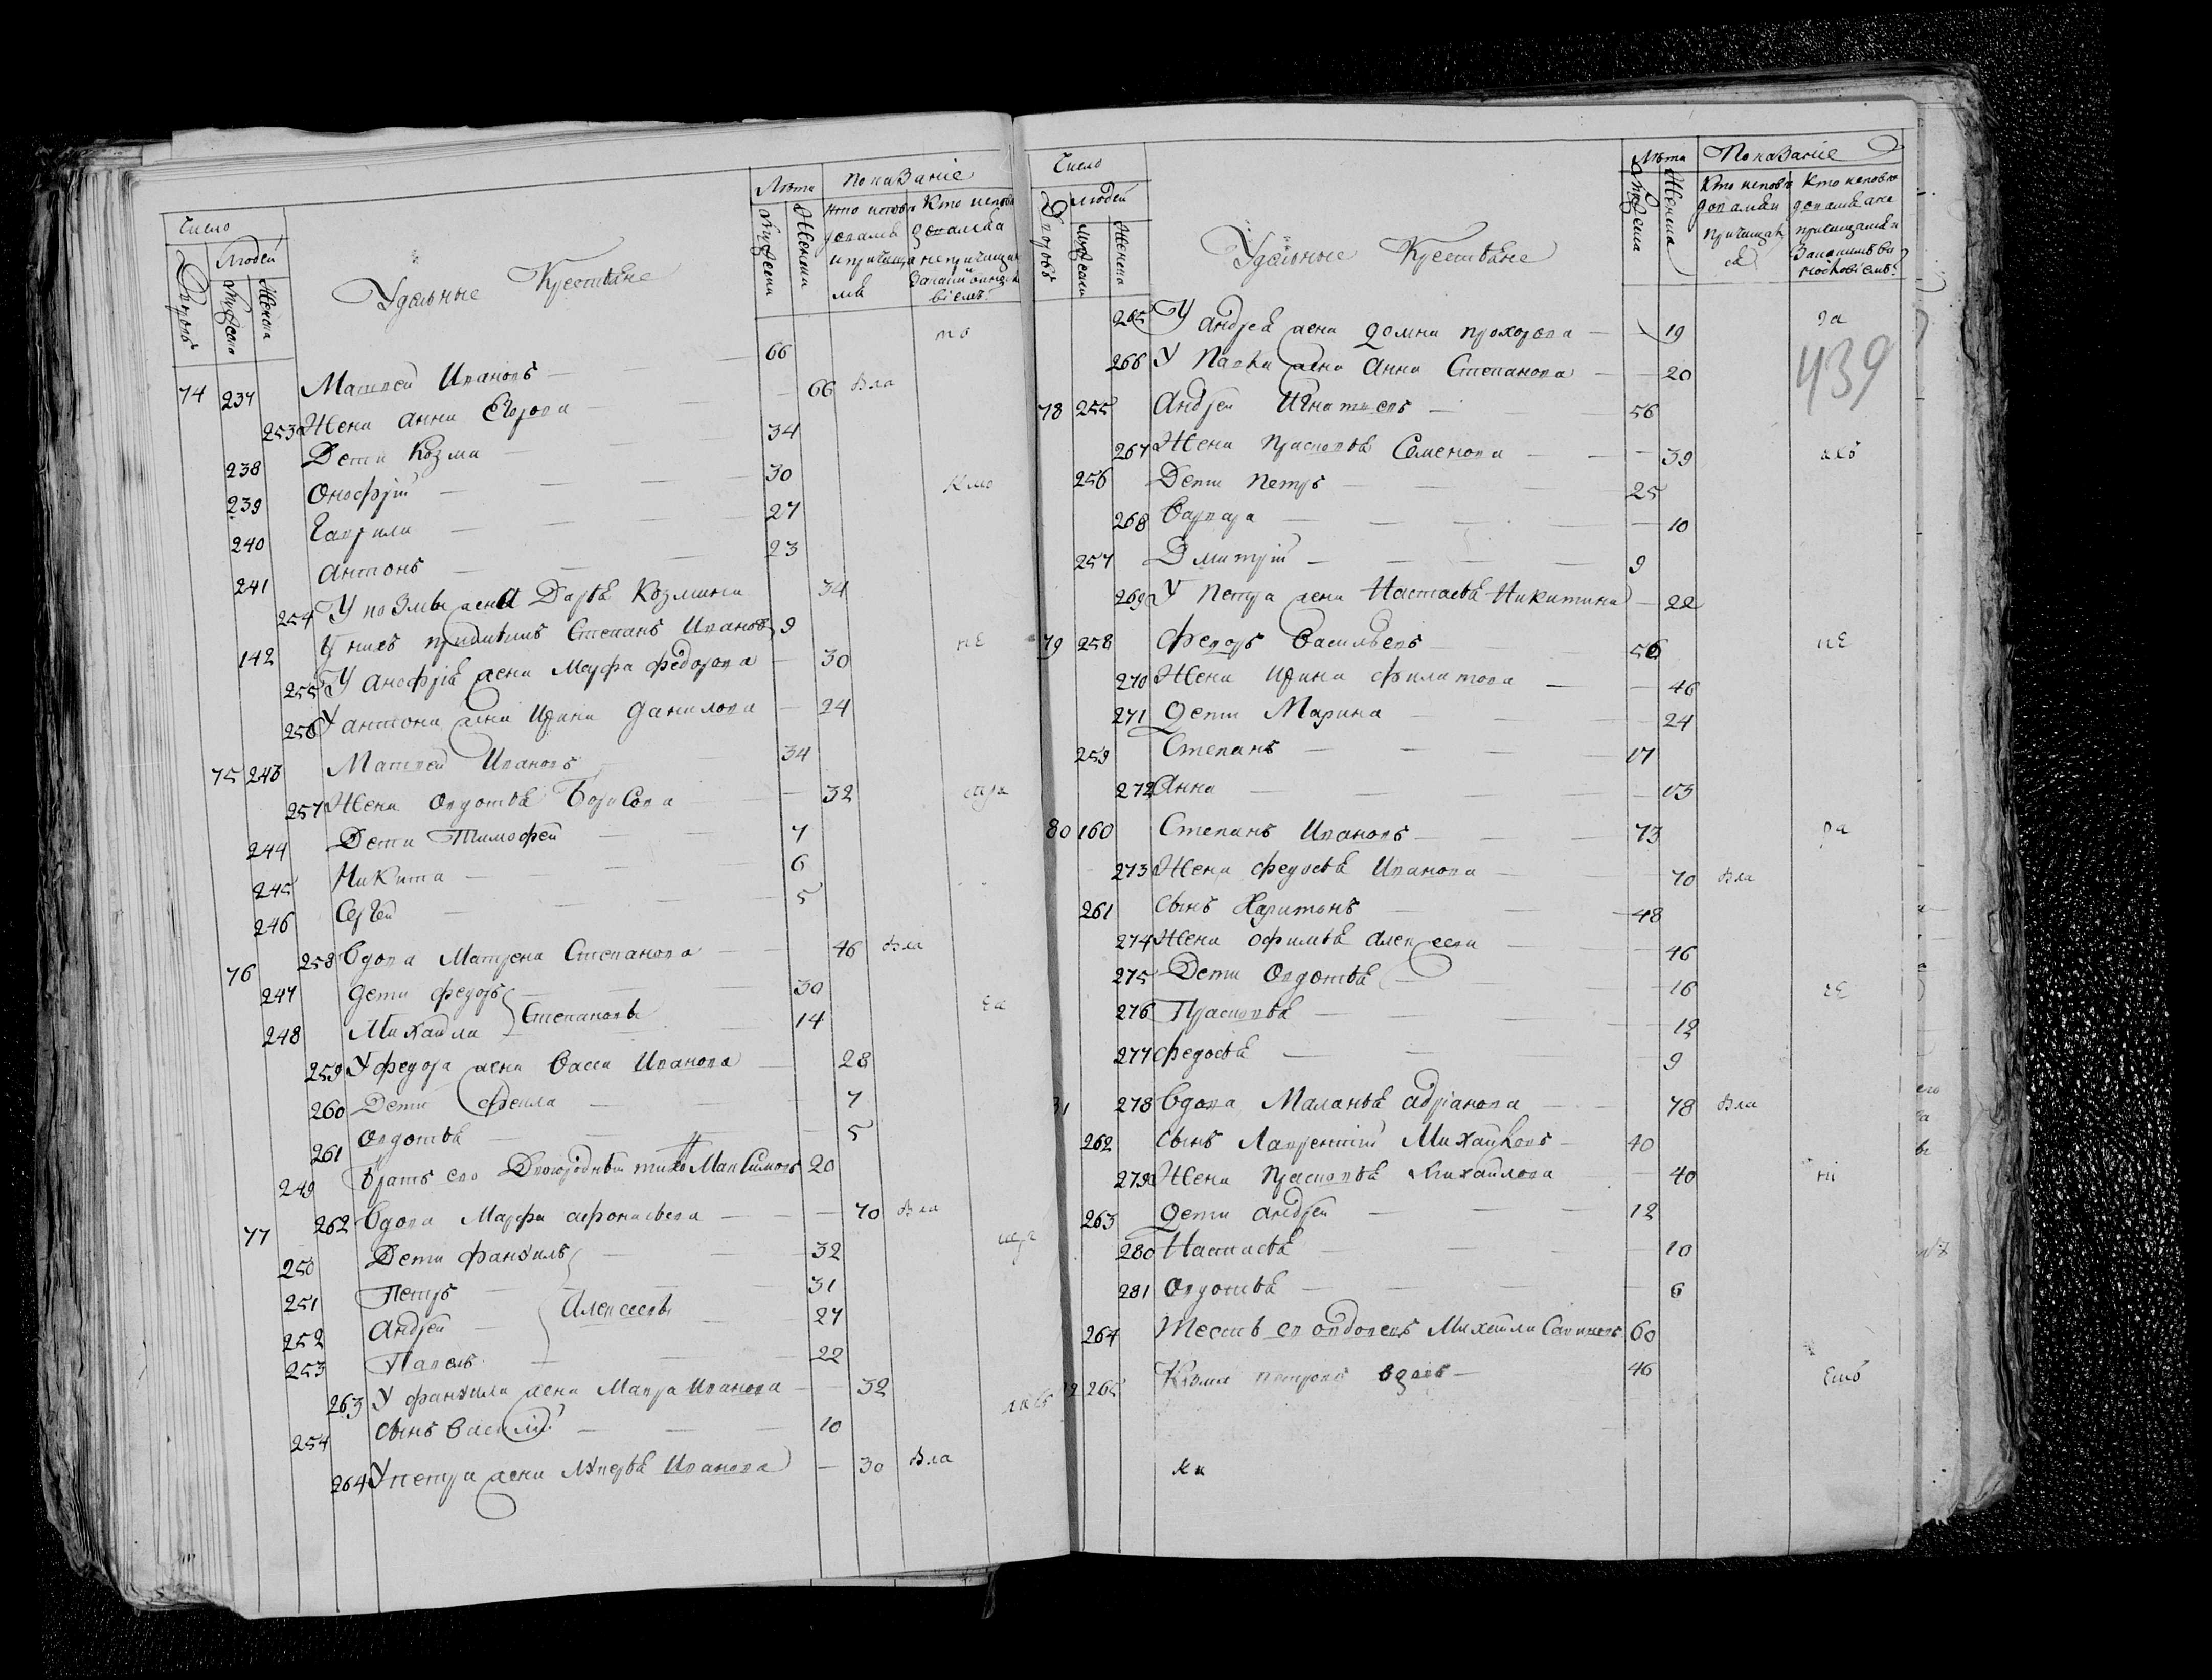 Число
Людей
Дворовъ
Мужеска
Женска
Удельные Крестьяне
Лѣта
Мужеска
Женска
Показаніе
74 237 Матвей Ивановъ 66
253 Жена Анна Егорова 66 была
238 Дети Козма 34
239 Онофрій 30
240 Гаврила 27
241 Антонъ 23
254 У Козмы жена Дарья Козмина 34
142 У нихъ Степанъ Ивановъ 9
255 У Анофрія жена Марфа Федорова 30
256 У Антона жена Ирина Данилова 24
75 243 Матвей Ивановъ 34
257 Жена Овдотья Борисова 32
244 Дети Тимофей 7
245 Никита 6
246 Сергей 5
76 258 Вдова Матрена Степанова 46 была
247 Дети Федоръ 30
248 Михайла Степановы 14
259 У Федора жена Васса Иванова 28
260 Дети Фекла 7
261 Овдотья 5
249 Братъ его Двоюродный Максимовъ 20
77 262 Вдова Марфа Афонасьева 70 была
250 Дети Фанхилъ 32
251 Петръ 31
Алексеевы
252 Андрей 27
253 Павелъ 22
263 У Фанхила жена Мавра Иванова 32
254 Сынъ Василій 10
264 У Петра жена Лукерья Иванова 30 была
Число
Людей
Дворовъ
Мужеска
Женска
Удельные Крестьяне
Лѣта
Мужеска
Женска
Показаніе
265 У Андрея жена Домна Прохорова 19
439
266 У Павла жена Анна Степанова 20
78 255 Андрей Игнатьевъ 56
267 Жена Прасковья Семенова 39
256 Дети Петръ 25
268 Варвара 10
257 Дмитрій 9
269 У Петра жена Настасья Никитина 22
79 258 Федоръ Васильевъ 56
270 Жена Ирина Филатова 46
271 Дети Марина 24
259 Степанъ 17
272 Анна 13
80 160 Степанъ Ивановъ 73
273 Жена Федосья Иванова 70 была
261 Сынъ Харитонъ 48
274 Жена Офимья Алексеева 46
275 Дети Овдотья 16
276 Прасковья 12
277 Федосья 9
278 Вдова Маланья Адріанова 78 была
262 Сынъ Лаврентій Михайловъ 40
279 Жена Прасковья Михайлова 40
263 Дети Андрей 12
280 Настасья 10
281 Овдотья 6
264 Тесть ево вдовецъ Михайла Савиновъ 60
265 Козма Петровъ вдовъ 46